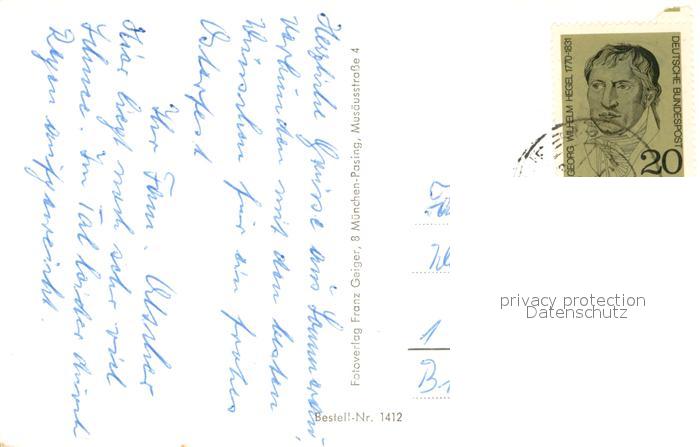 Herzliche Grüsse aus
verbunden mit den besten
Wünschen für ein frohes
Osterfest
Ihre Fam.
Hier liegt noch sehr viel
Schnee. Im Tal leider durch
Regen aufgeweicht.
Fotoverlag Franz Geiger, 8 München-Pasing, Musäusstraße 4
Bestell-Nr. 1412
GEORG WILHELM HEGEL 1770-1831
DEUTSCHE BUNDESPOST
20
1
B
privacy protection
Datenschutz